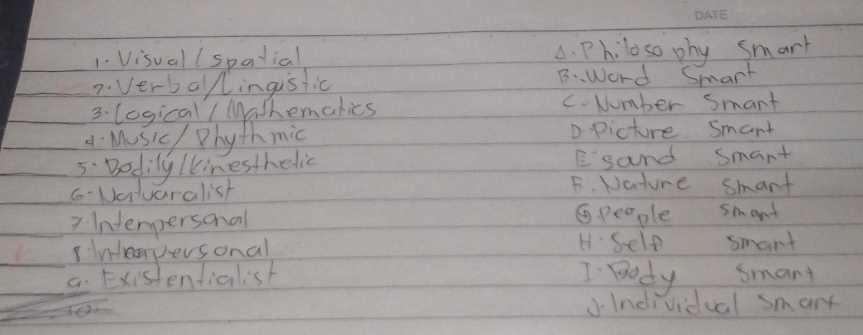 DATE
1. Visual / spatial
2. Verbal / Lingustic
3. Logical / Mathematics
4. Music / Rhythmic
5. Bodily / Kinesthetic
6. Natuaralist
7. Interpersonal
8. Intrapersonal
9. Existentialist
A. Philosophy Smart
B. Word Smart
C. Number Smart
D. Picture Smart
E. sand Smart
F. Nature Smart
G. People smart
H. Self smart
I. Body smart
J. Individual smart